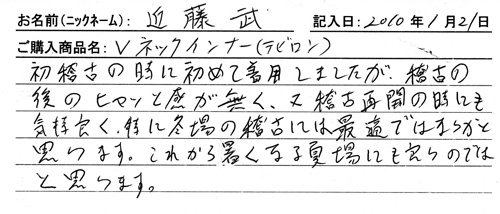 お名前(ニックネーム): 近藤 武 記入日: 2010 年 1 月 21 日
ご購入商品名: Vネックインナー(テビロン)
初稽古の時に初めて着用しましたが、稽古の
後のヒヤッと感が無く、又稽古再開の時にも
気持良く、特に冬場の稽古には最適ではないかと
思います。これから暑くなる夏場にも良いのでは
と思います。